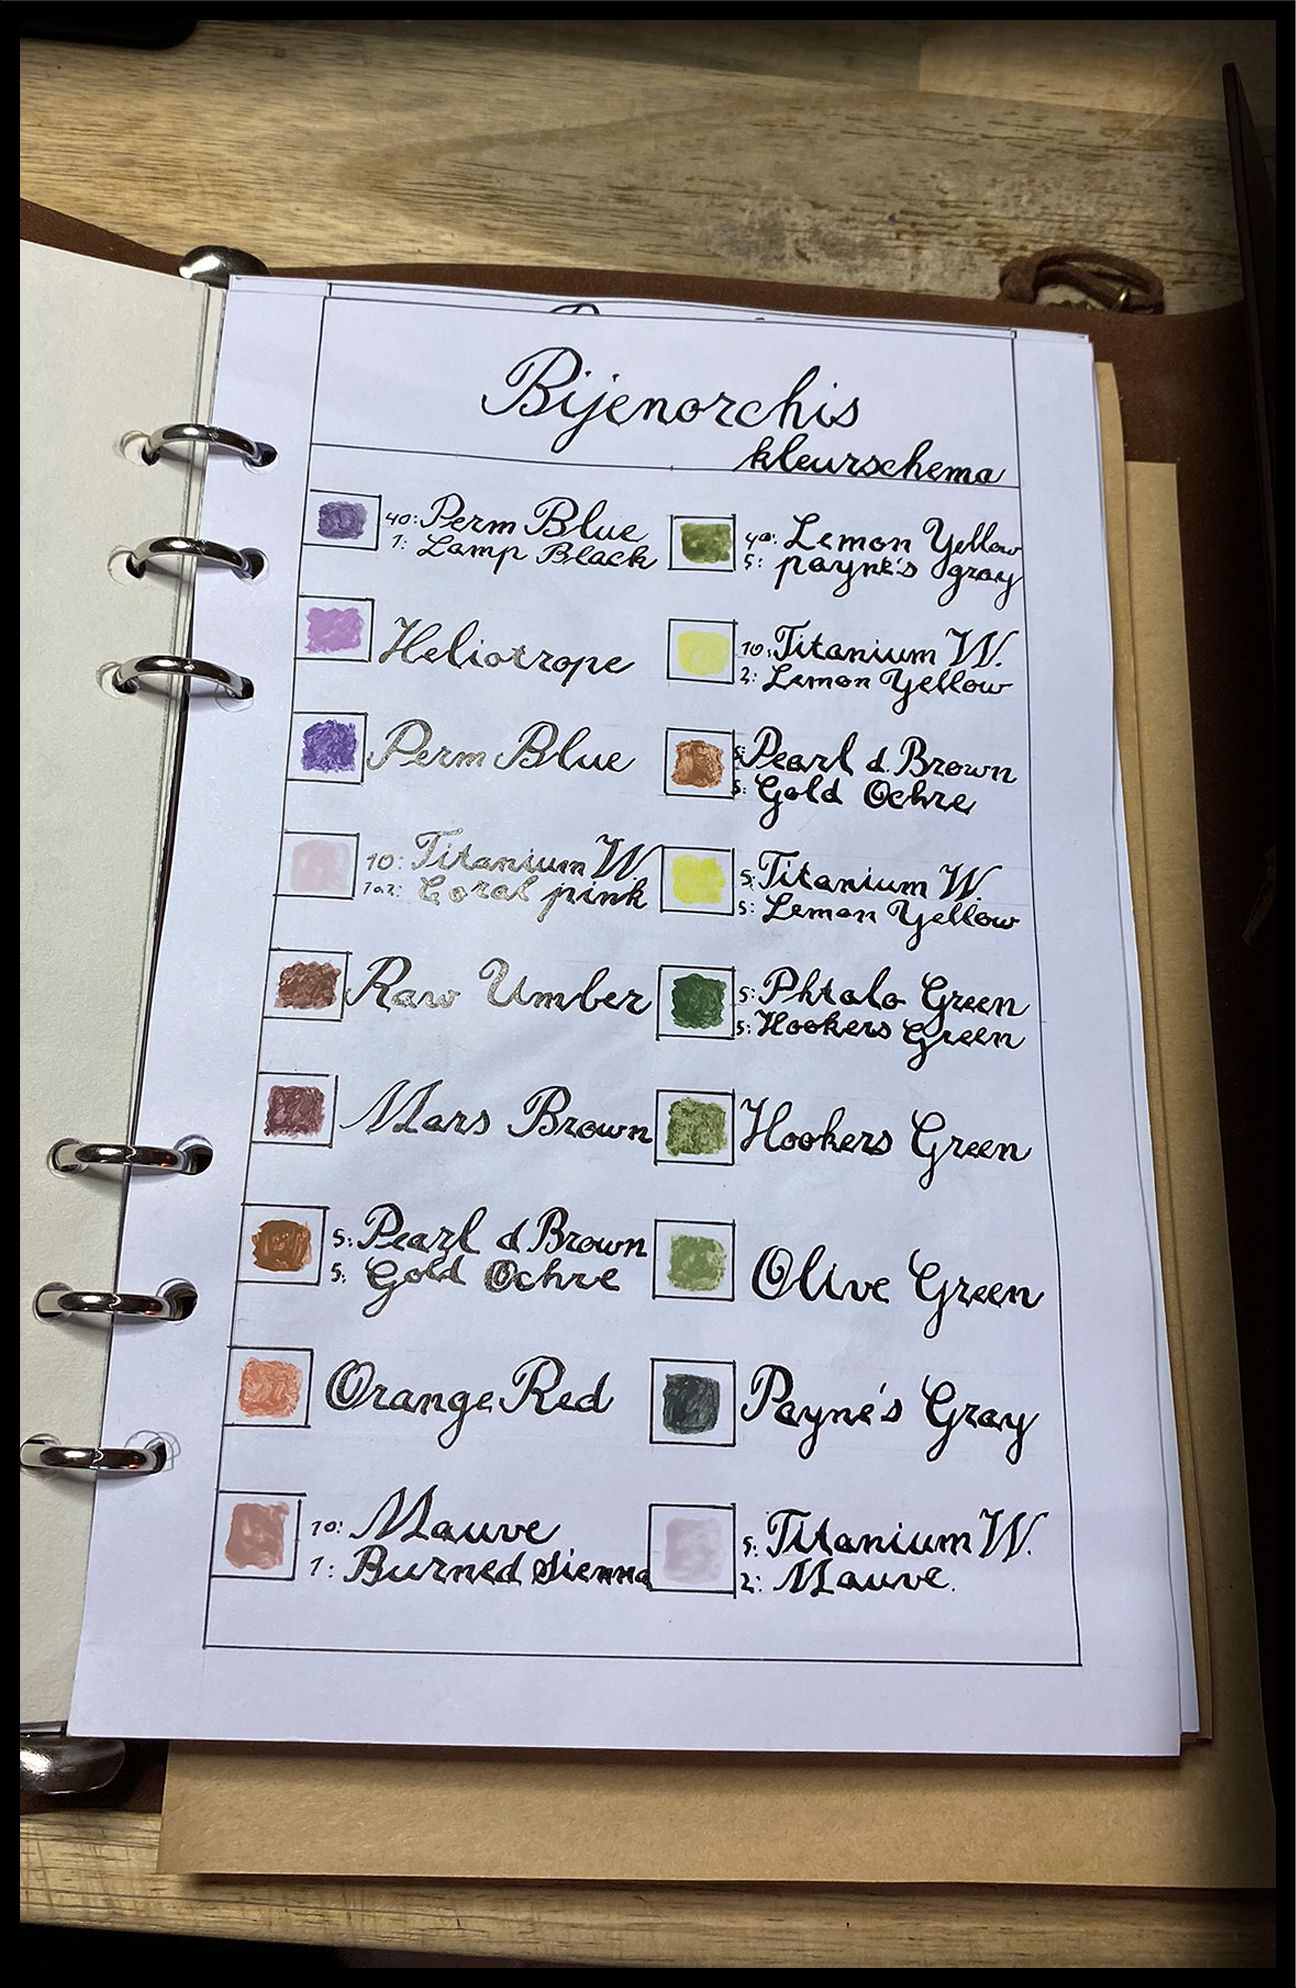 Bijenorchis
kleurschema
40: Perm Blue
1: Lamp Black
Heliotrope
Perm Blue
10: Titanium W.
1 a 2: Coral pink
Raw Umber
Mars Brown
5: Pearl d Brown
5: Gold Ochre
Orange Red
10: Mauve
1: Burned Sienna
40: Lemon Yellow
5: payne's gray
10: Titanium W.
2: Lemon Yellow
5: Pearl d. Brown
5: Gold Ochre
5: Titanium W.
5: Lemon Yellow
5: Phtalo Green
5: Hookers Green
Hookers Green
Olive Green
Payne's Gray
5: Titanium W.
2: Mauve.